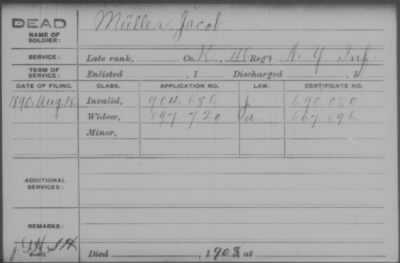 DEAD Müller, Jacob
NAME OF SOLDIER:
SERVICE: Late rank, Co. K, 46 Reg't N. Y. Inf
TERM OF SERVICE: Enlisted , 1 Discharged , 1
DATE OF FILING. CLASS. APPLICATION NO. LAW. CERTIFICATE NO.
1890. Aug 18. Invalid, 904.686 690.080
Widow, 897.720 a. 667.896
Minor,
ADDITIONAL SERVICES:
REMARKS:
Died , 1908, at